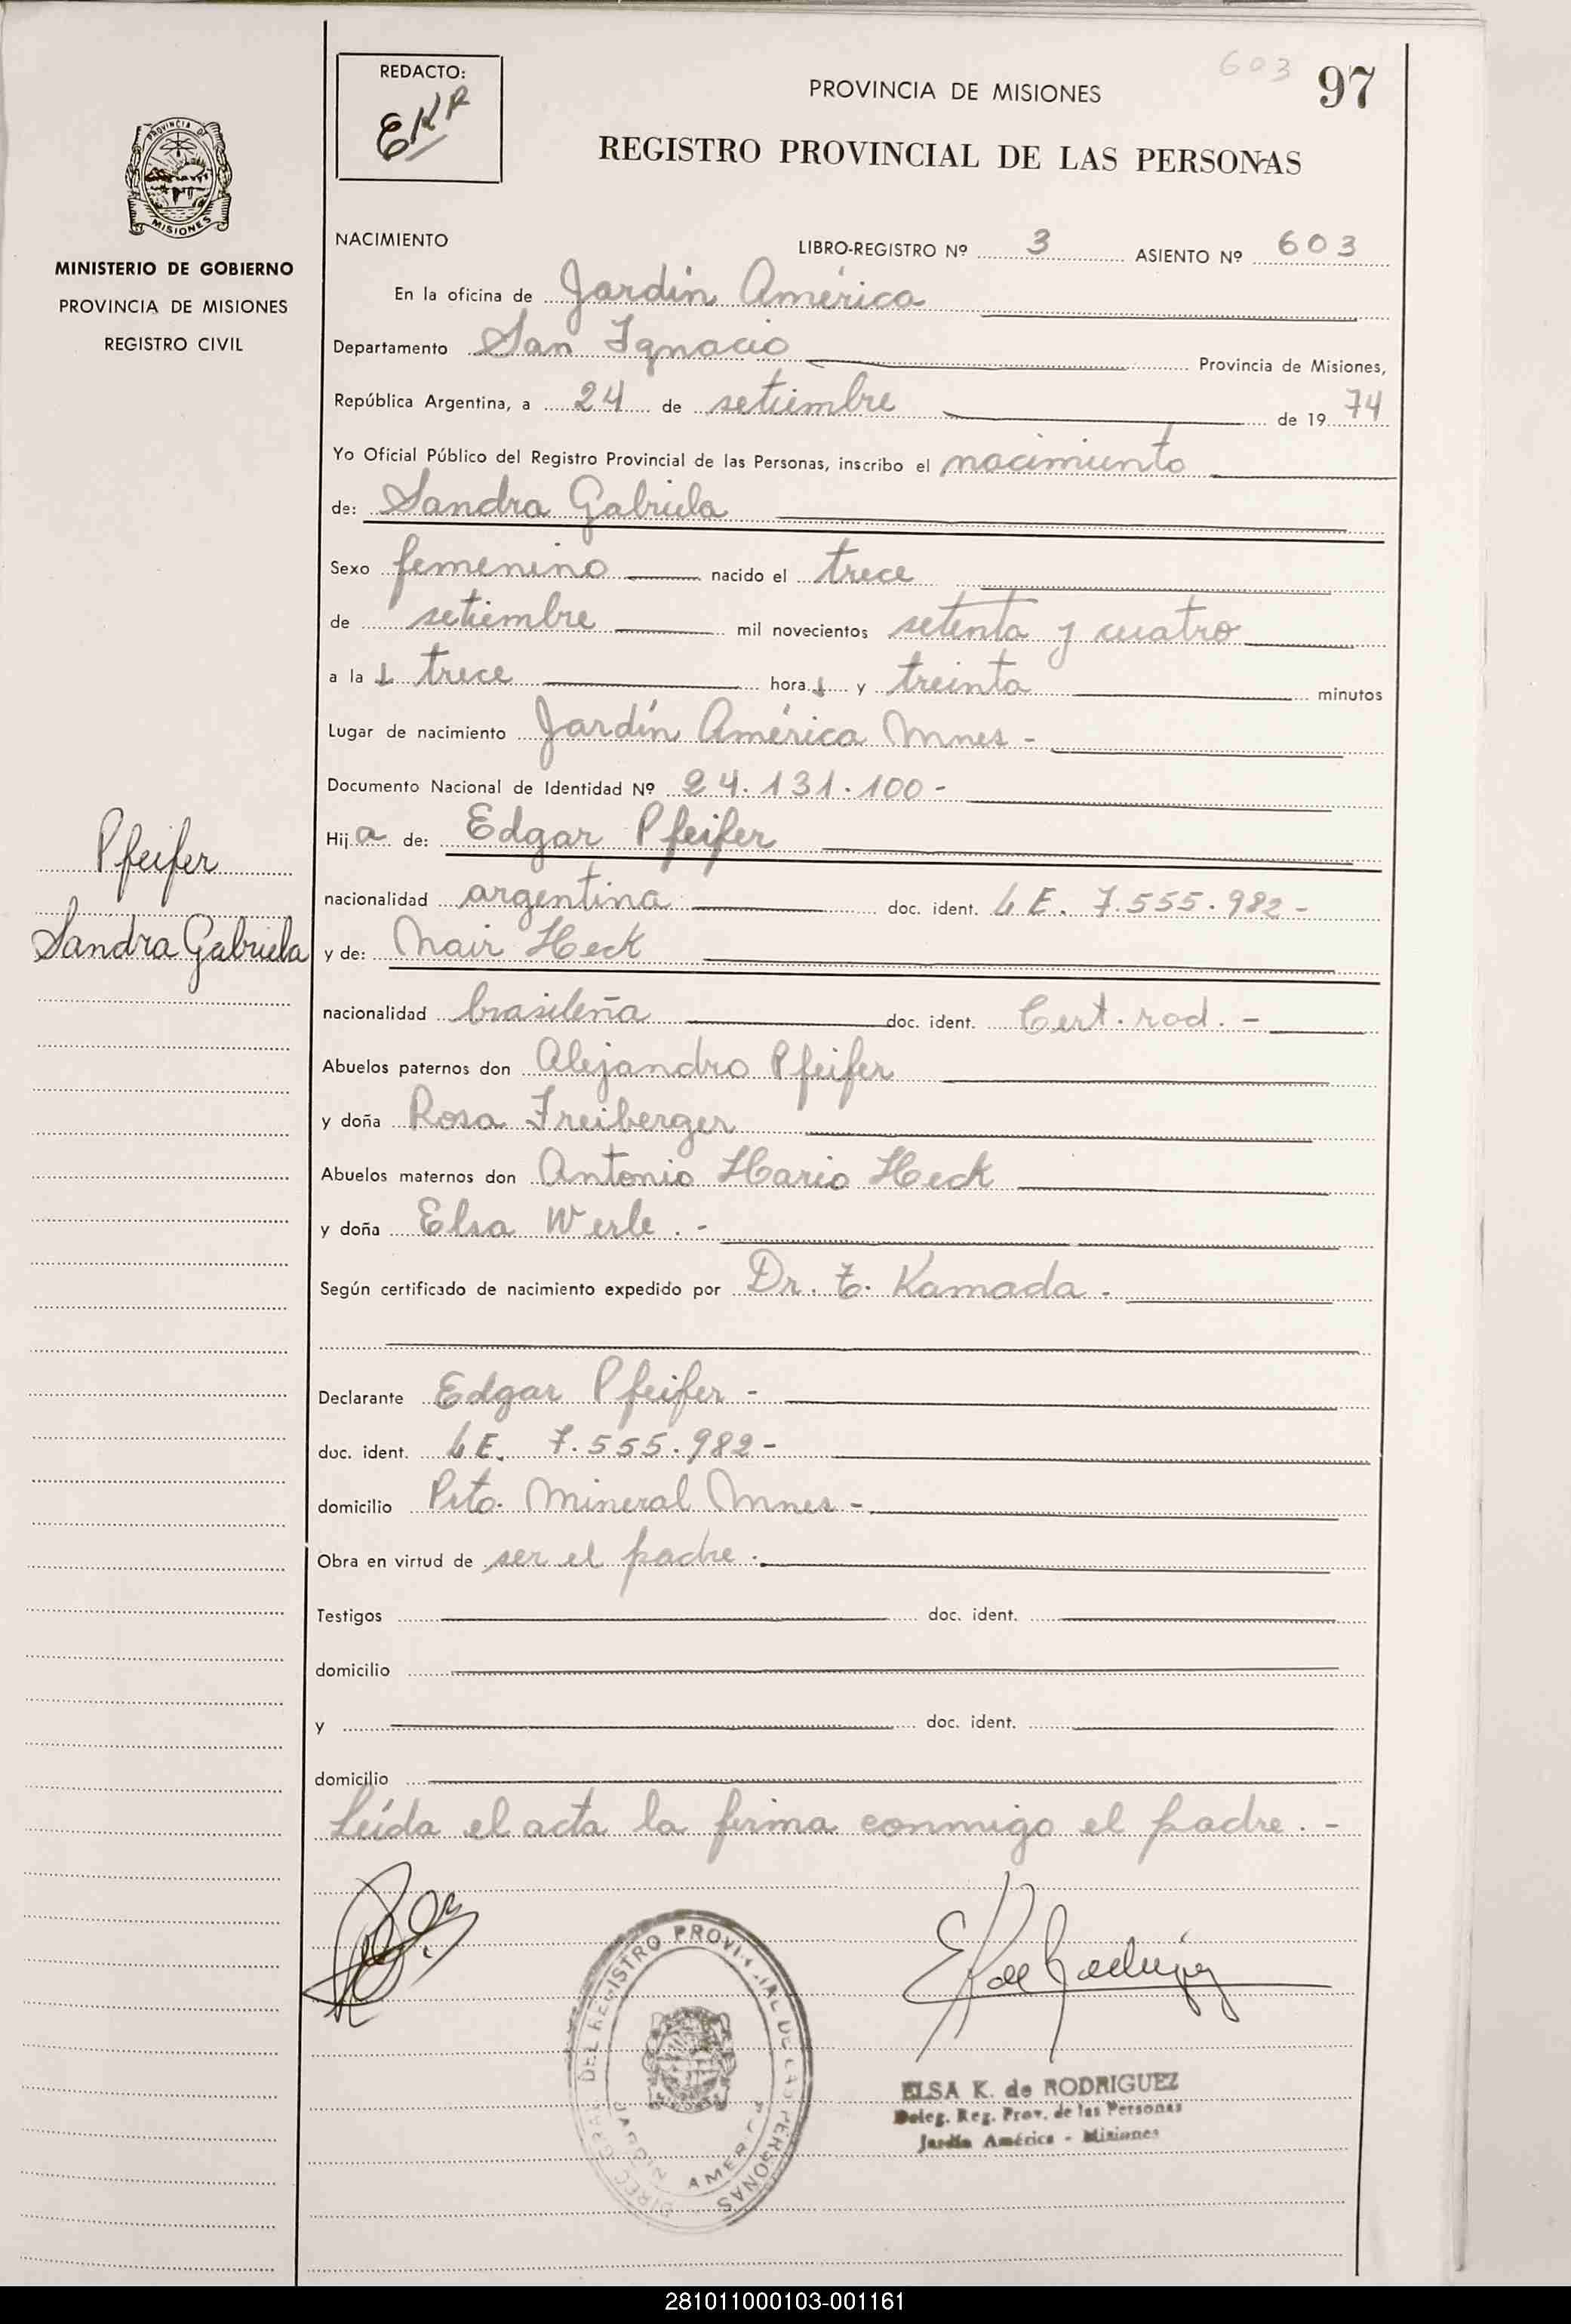 603 97
REDACTO:
EKR
PROVINCIA DE MISIONES
REGISTRO PROVINCIAL DE LAS PERSONAS
PROVINCIA DE
MISIONES
MINISTERIO DE GOBIERNO
PROVINCIA DE MISIONES
REGISTRO CIVIL
NACIMIENTO LIBRO-REGISTRO Nº 3 ASIENTO Nº 603
En la oficina de Jardín América
Departamento San Ignacio Provincia de Misiones,
República Argentina, a 24 de setiembre de 19 74
Yo Oficial Público del Registro Provincial de las Personas, inscribo el nacimiento
de: Sandra Gabriela
Sexo femenino nacido el trece
de setiembre mil novecientos setenta y cuatro
a la s trece hora s y treinta minutos
Lugar de nacimiento Jardín América Mnes -
Documento Nacional de Identidad Nº 24.131.100 -
Hij a de: Edgar Pfeifer
Pfeifer
nacionalidad argentina doc. ident. L E. 7.555.982 -
Sandra Gabriela
y de: Nair Heck
nacionalidad brasileña doc. ident. Cert. rad. -
Abuelos paternos don Alejandro Pfeifer
y doña Rosa Freiberger
Abuelos maternos don Antonio Hario Heck
y doña Elsa Werle . -
Según certificado de nacimiento expedido por Dr. T. Kamada -
Declarante Edgar Pfeifer -
doc. ident. L E. 7.555.982 -
domicilio Pto. Mineral Mnes -
Obra en virtud de ser el padre .
Testigos doc. ident.
domicilio
y doc. ident.
domicilio
Leída el acta la firma conmigo el padre . -
DEL REGISTRO PROVINCIAL DE LAS PERSONAS
JARDIN AMERICA
E K de Rodríguez
ELSA K. de RODRIGUEZ
Deleg. Reg. Prov. de las Personas
Jardín América - Misiones
281011000103-001161